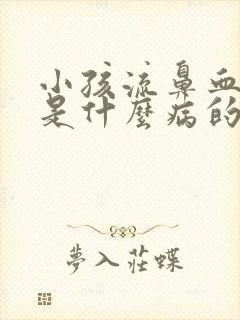 小孩流鼻血
是什麼病的
夢入莊蝶